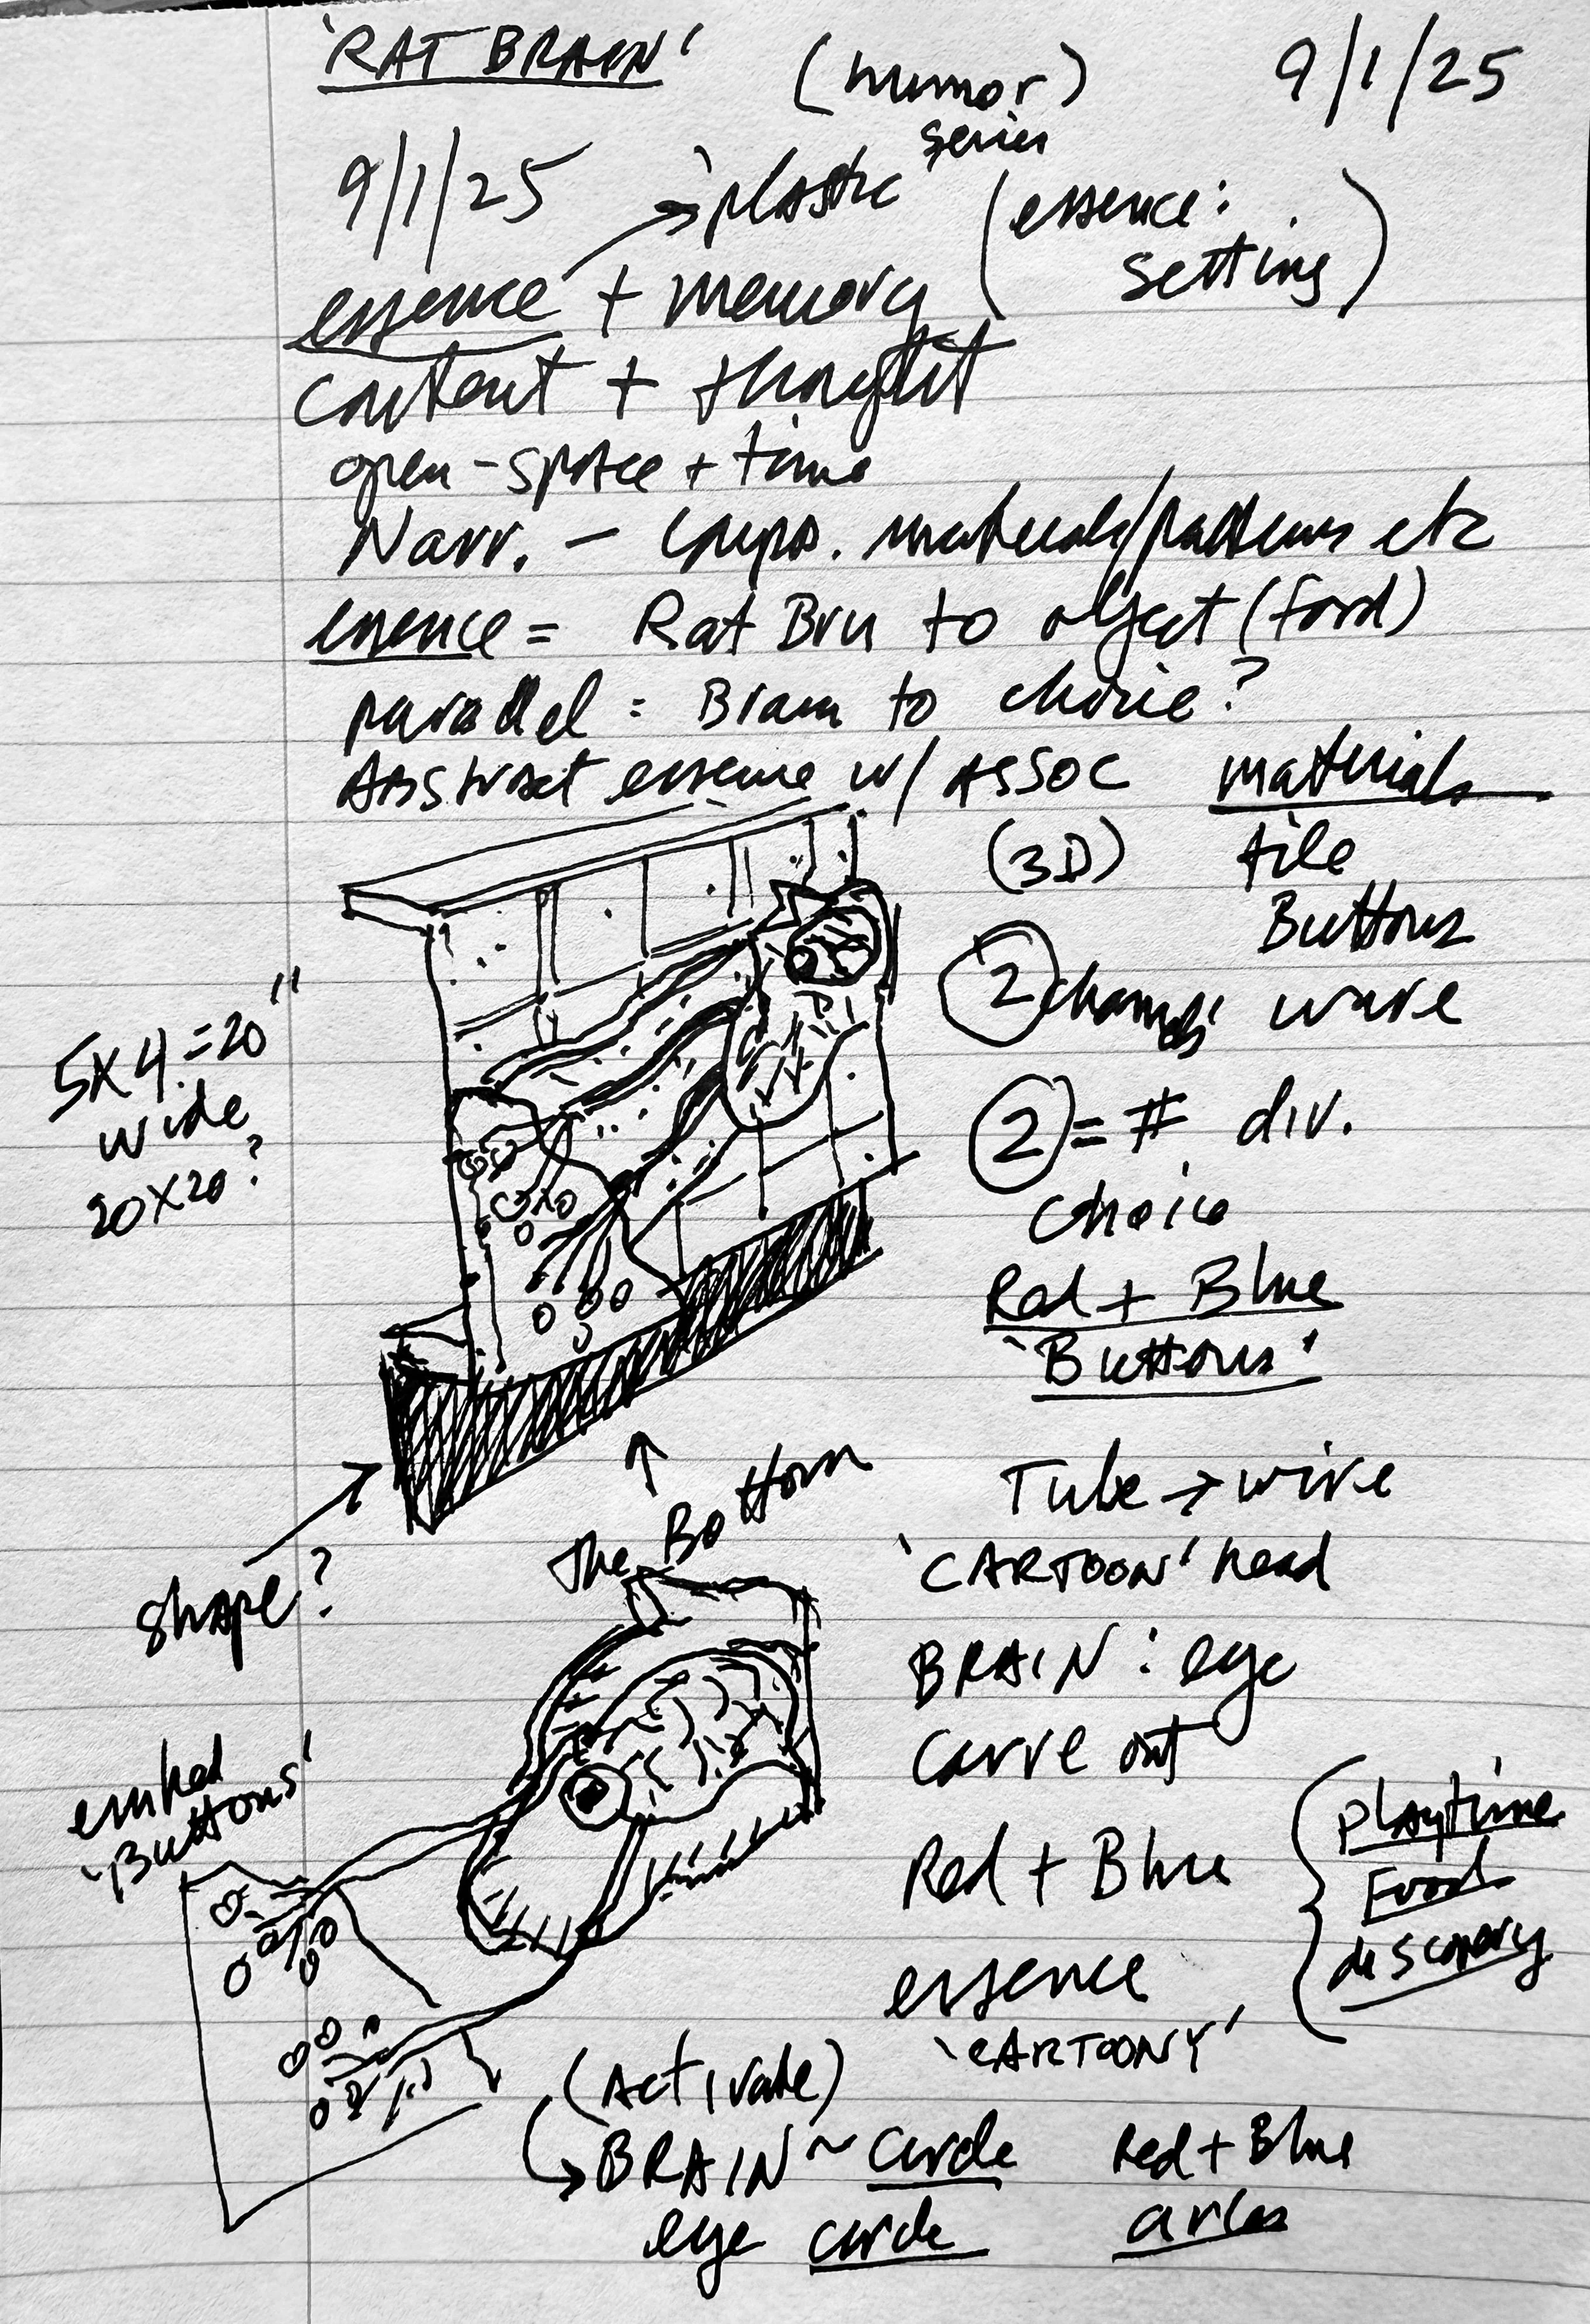 'RAT BRAIN' (humor) 9/1/25
series
9/1/25 → 'plastic' (essence:
setting)
essence + memory
content + thought
open-space + time
Narr. - comps. materials/patterns etc
essence = Rat Brn to object (Food)
parallel = Brain to choice?
Abstract essence w/ ASSOC
(3D)
materials
tile
Buttons
wire
2 changes
2 = # div.
choice
Red + Blue
'Buttons'
5x4=20"
wide
20x20?
The Bottom
Shape?
Tube → wire
'CARTOON' head
BRAIN: eye
carve out
Red + Blue
Playtime
Food
discovery
essence
'CARTOONY'
embed
'Buttons'
(Activate)
→ BRAIN ~ circle
eye circle
Red + Blue